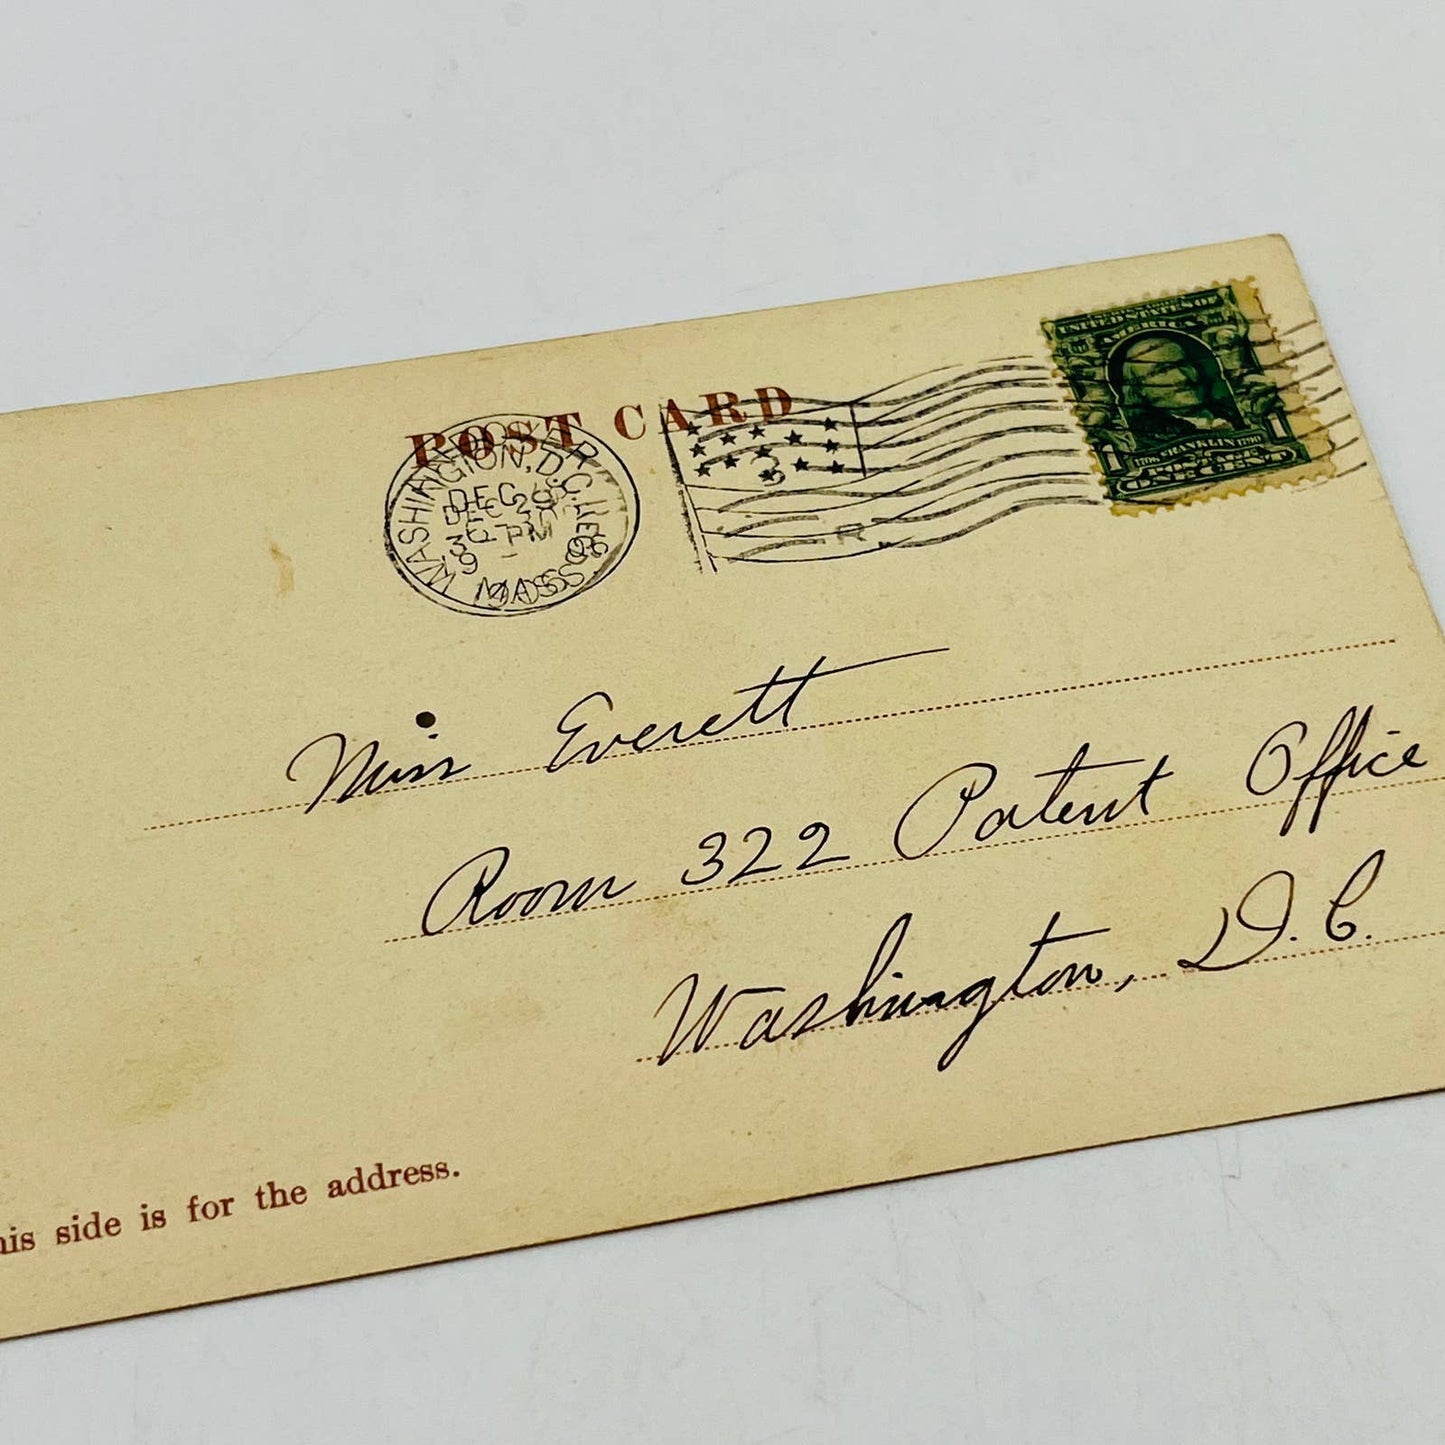 POST CARD
WASHINGTON, D.C.
DEC
PM
MASS.
3
R
UNITED STATES OF
AMERICA
1706 FRANKLIN 1790
1 POSTAGE 1
ONE CENT
Miss Everett
Room 322 Patent Office
Washington, D.C.
his side is for the address.